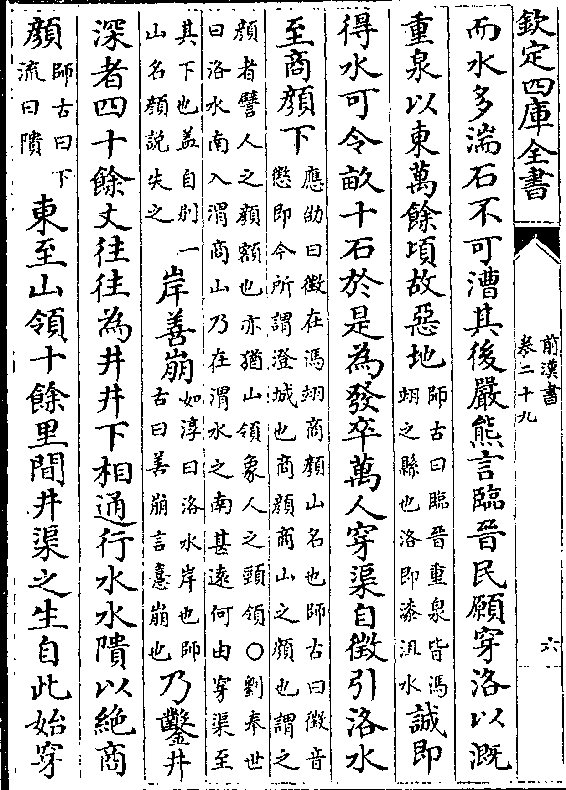 欽定四庫全書
前漢書
卷二十九
六
而水多湍石不可漕其後嚴熊言臨晉民願穿洛以溉
重泉以東萬餘頃故惡地
師古曰臨晉重泉皆馮
翊之縣也洛即漆沮水
誠即
得水可令畝十石於是為發卒萬人穿渠自徵引洛水
至商顔下
應劭曰徵在馮翊商顔山名也師古曰徵音
懲即今所謂澄城也商顔商山之顔也謂之
顔者譬人之顔額也亦猶山領象人之頸領○劉奉世
曰洛水南入渭商山乃在渭水之南甚遠何由穿渠至
其下也葢自别一
山名顔說失之
岸善崩
如淳曰洛水岸也師
古曰善崩言憙崩也
乃鑿井
深者四十餘丈往往為井井下相通行水水隤以絶商
顔
師古曰下
流曰隤
東至山領十餘里間井渠之生自此始穿